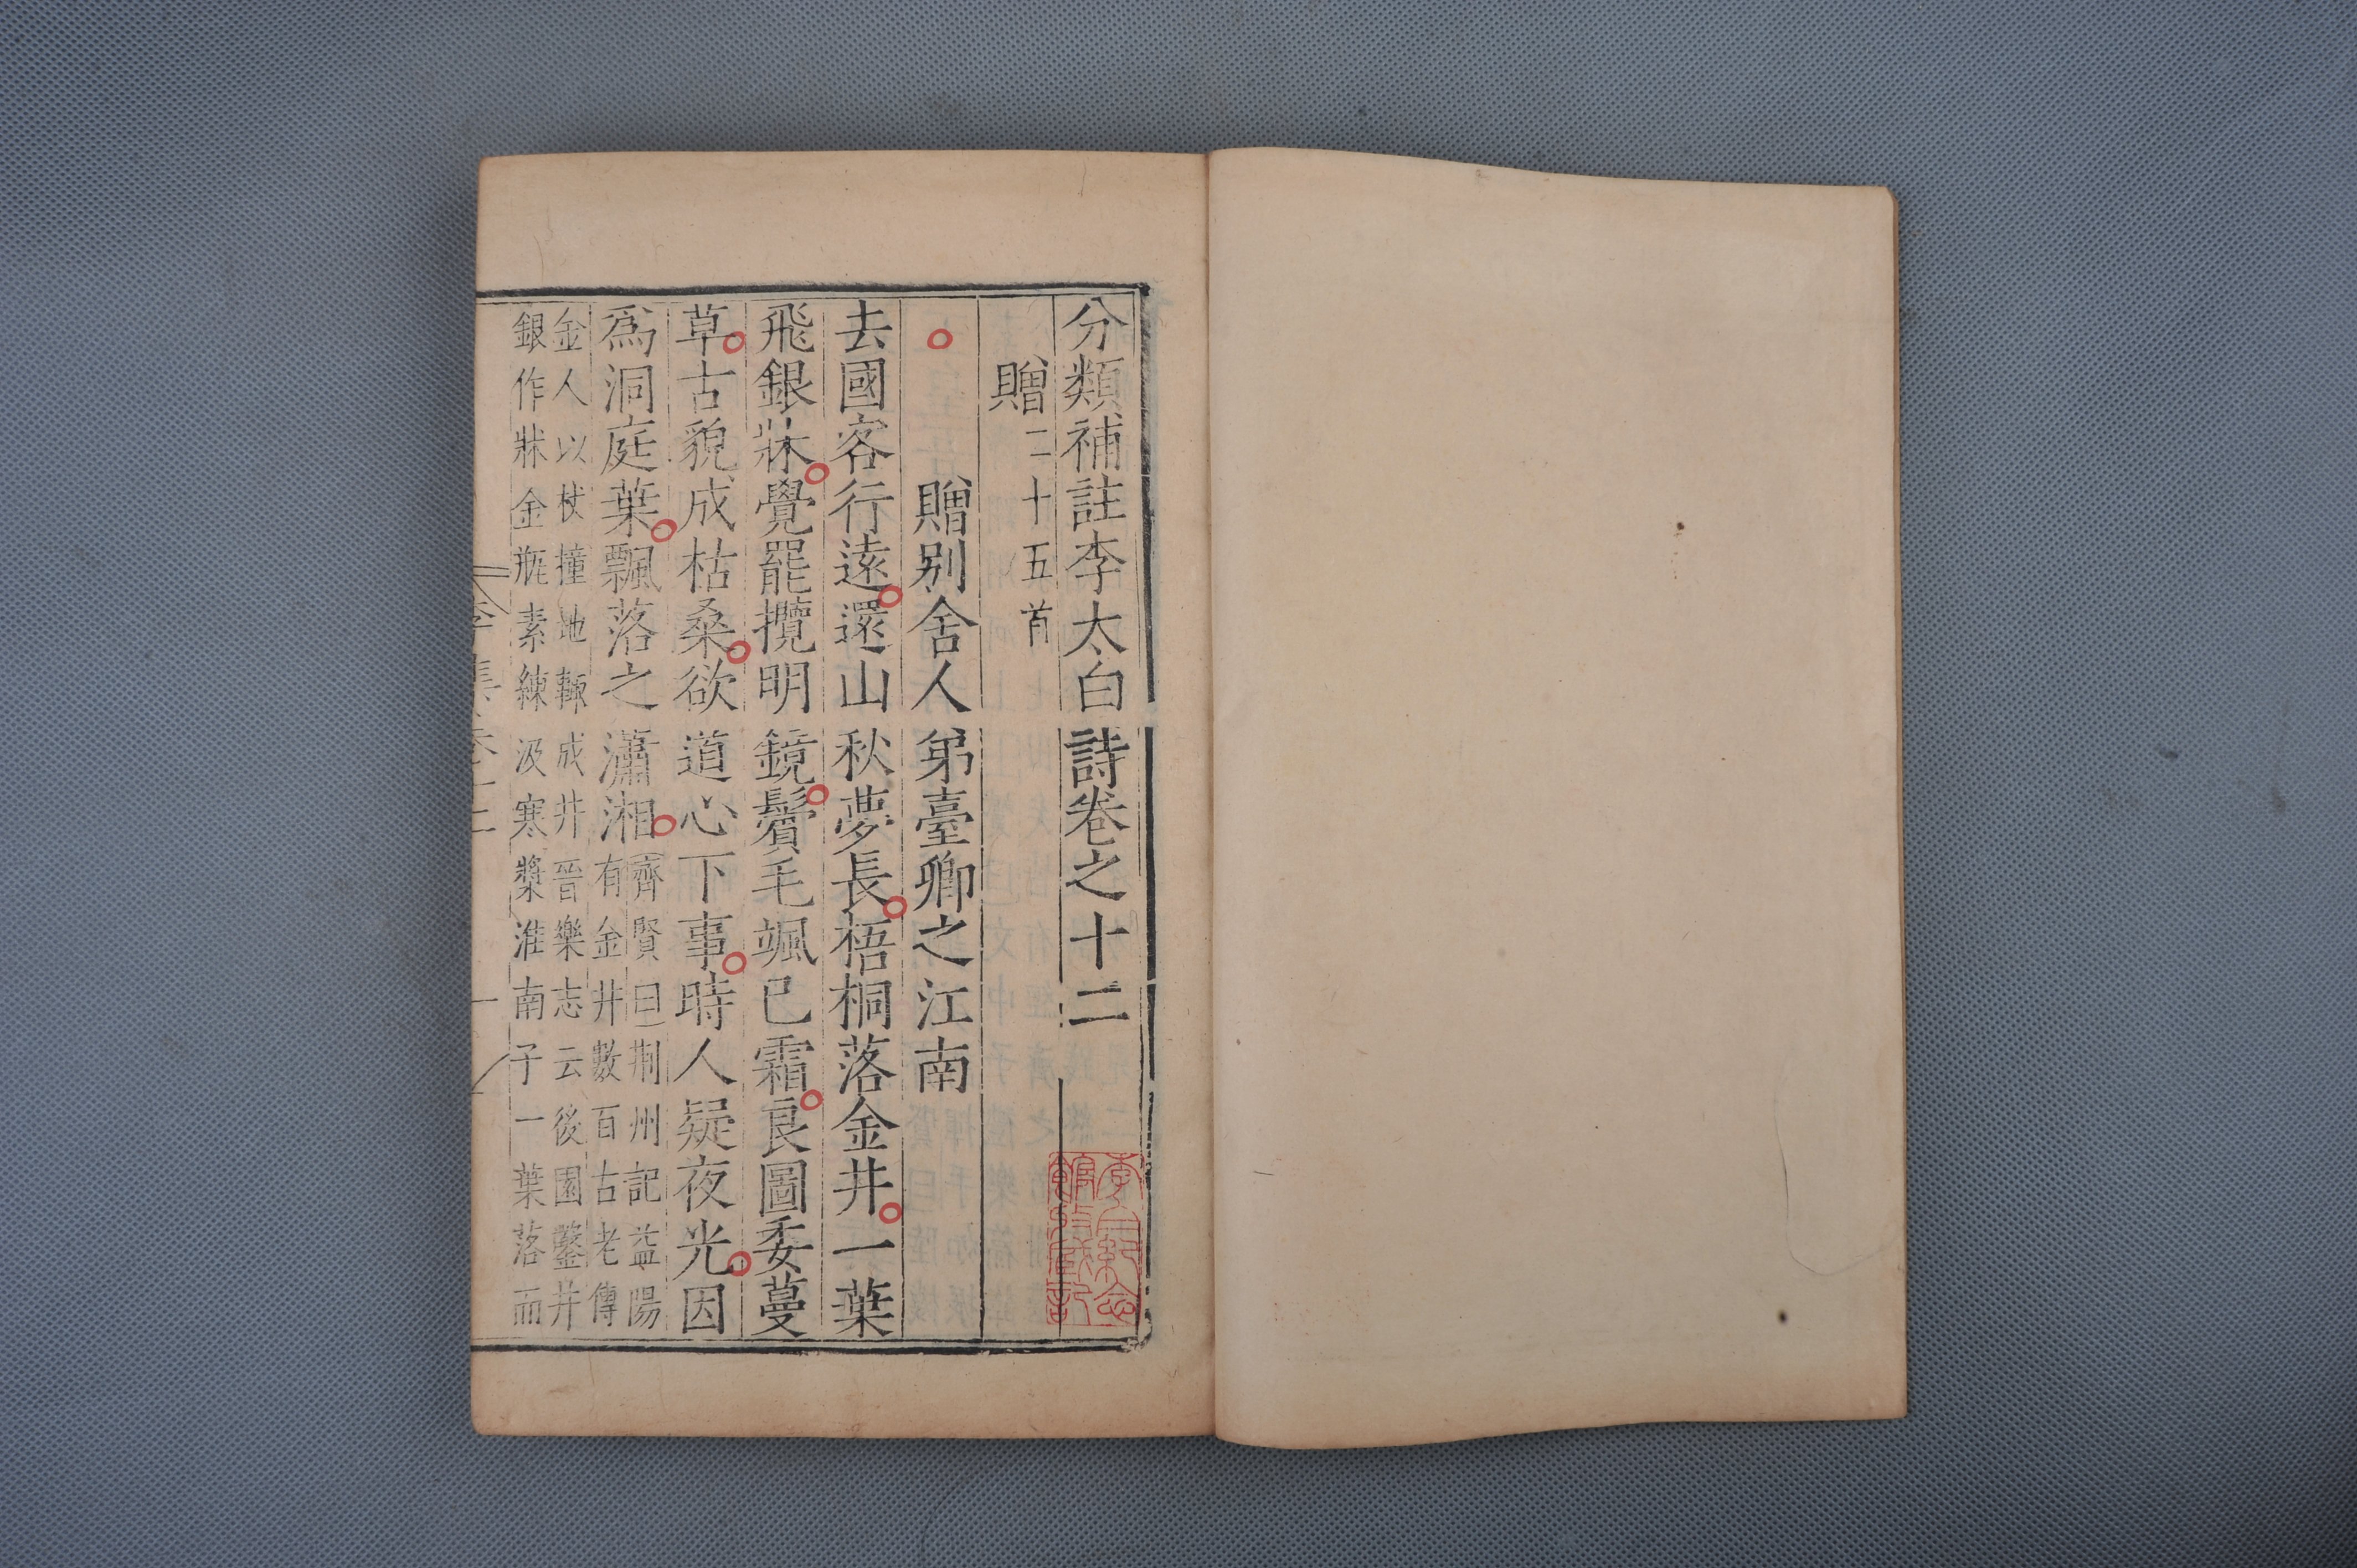 分類補註李太白詩卷之十二
贈二十五首
贈别舍人弟臺卿之江南
去國客行遠還山秋夢長梧桐落金井一葉
飛銀牀覺罷攬明鏡鬢毛颯已霜良圖委蔓
草古貌成枯桑欲道心下事時人疑夜光因
爲洞庭葉飄落之瀟湘
齊賢曰荆州記益陽
有金井數百古老傳
金人以杖撞地輙成井晉樂志云後園鑿井
銀作牀金瓶素練汲寒漿淮南子一葉落而